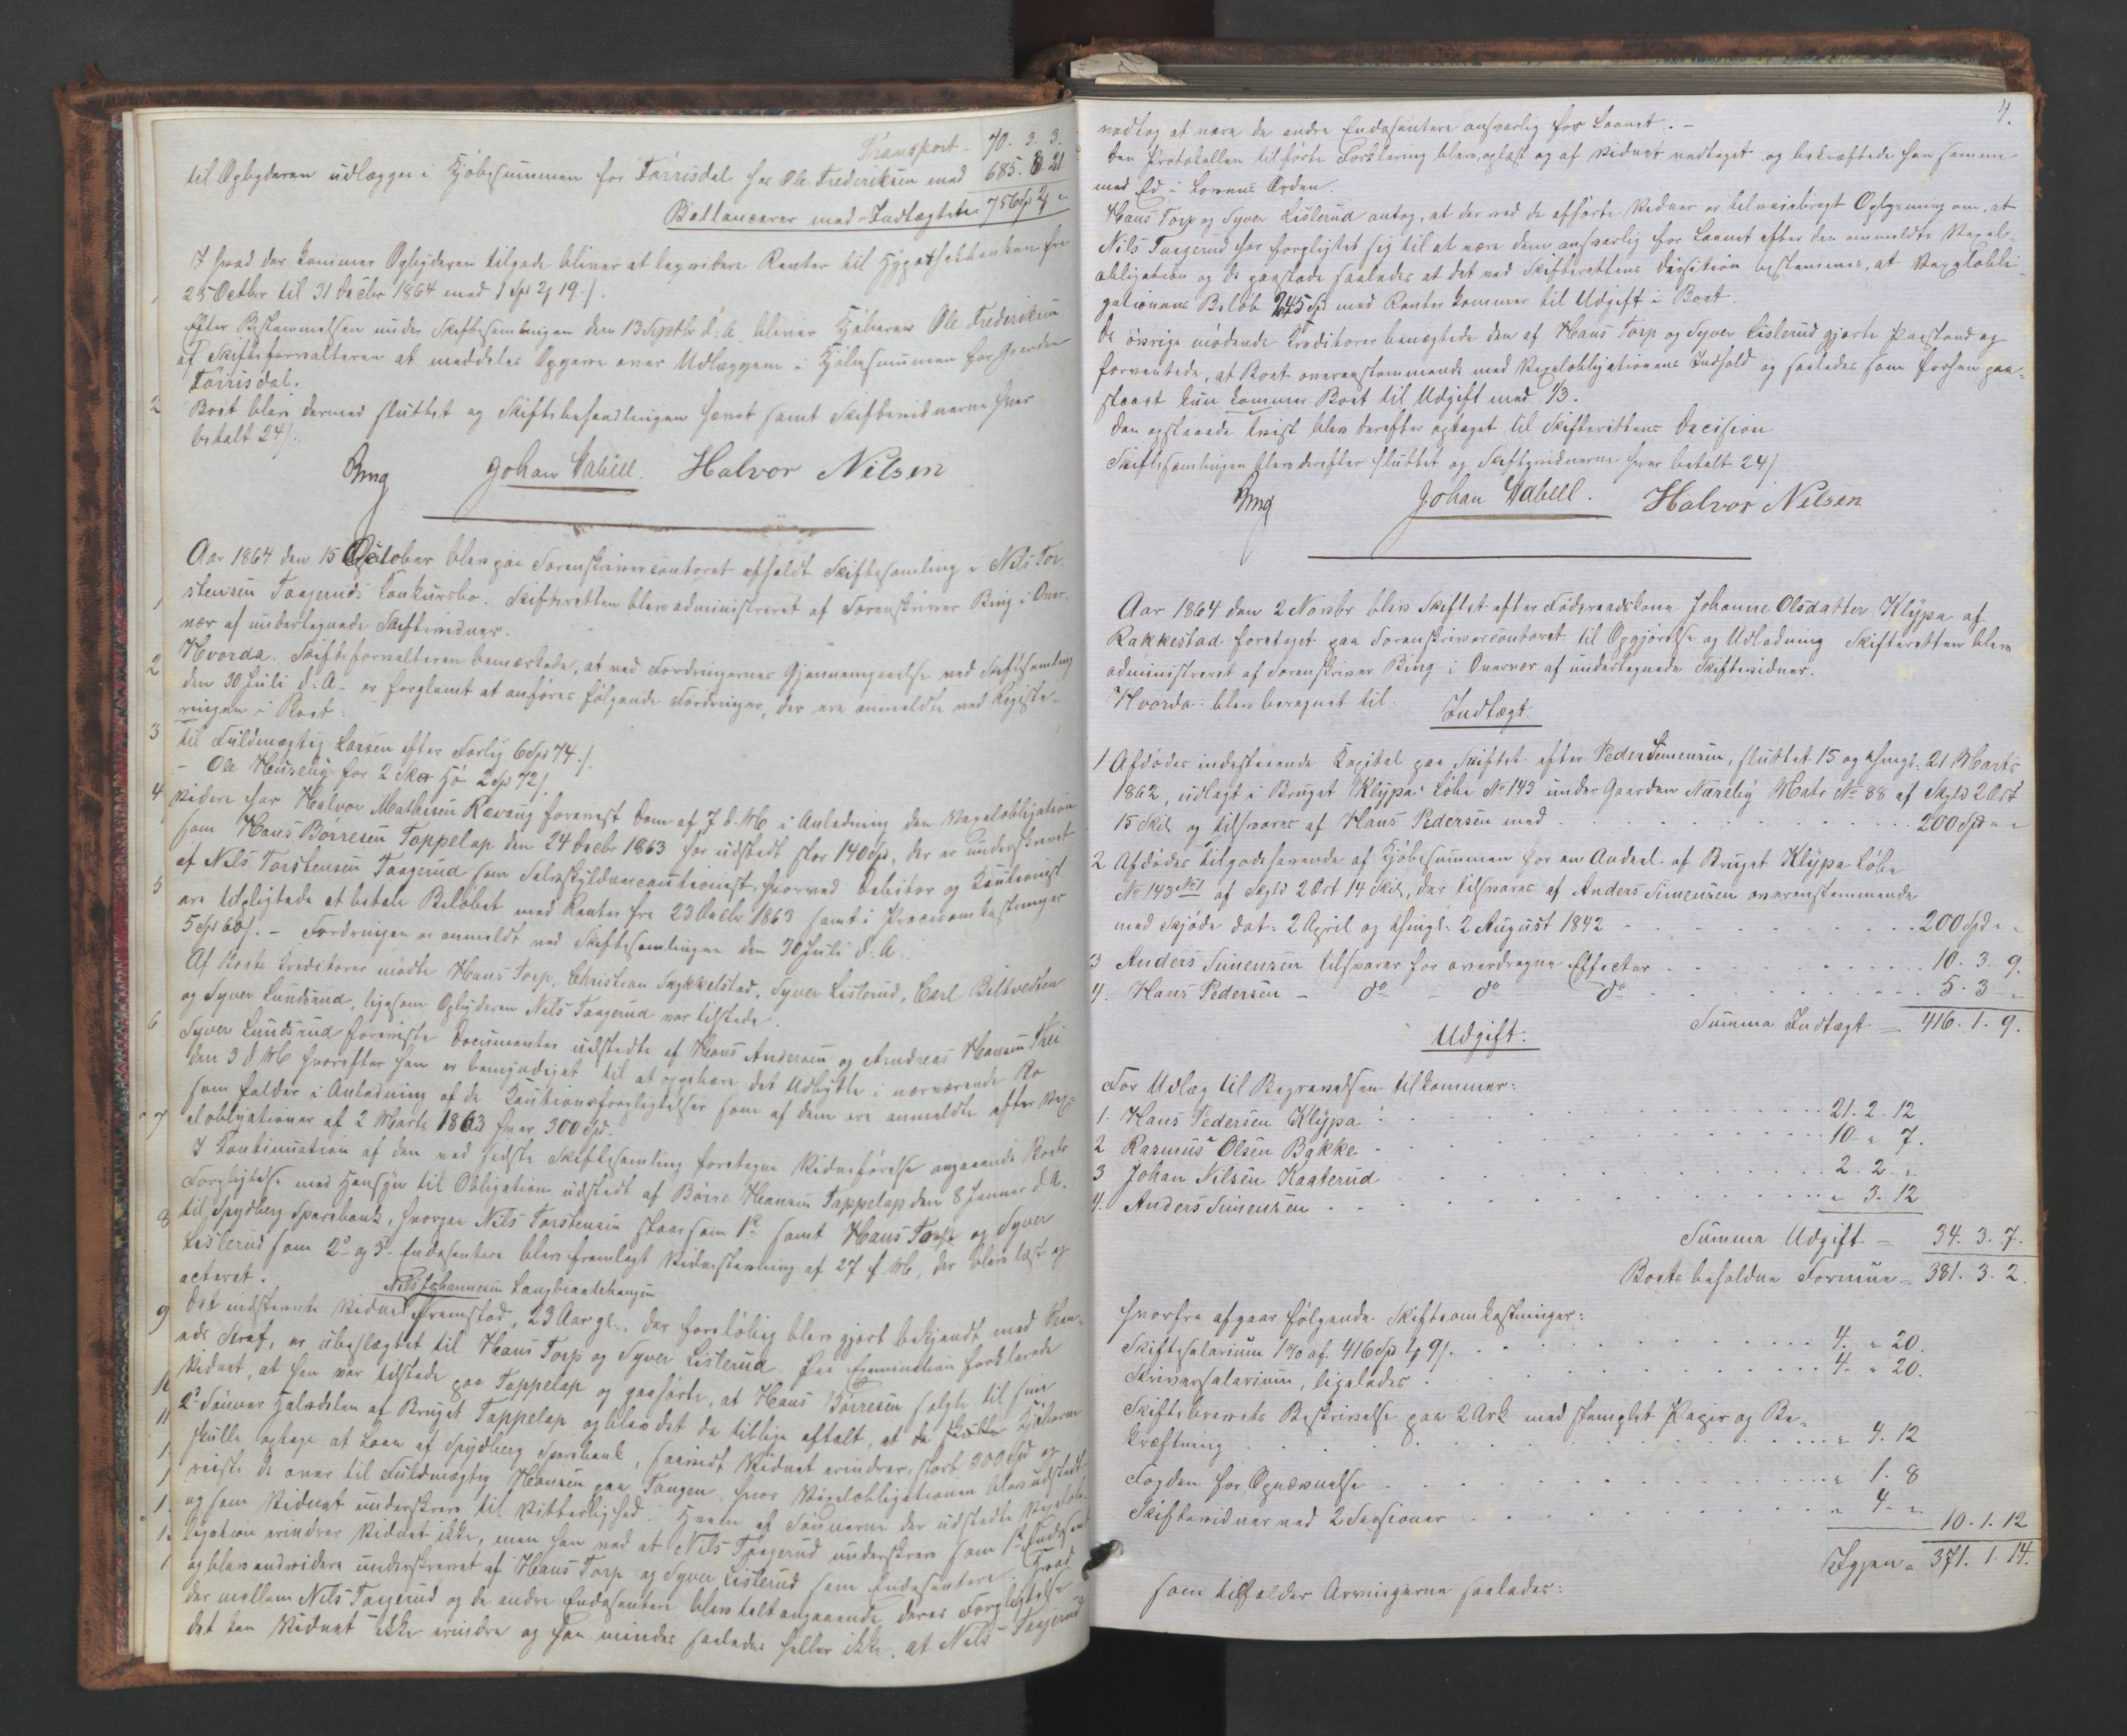 Transport - 70. 3. 3.
til Opbyderen udlægges i Kjøbesummen for Tørrisdal hos Ole Frederiksen med 685. 3. 21
Ballancerer med Indtægten 756 Spd 2 "
I hvad der kommer Opbyderen tilgode bliver at lægvidere Renter til Hypothekbanken fra
25 Octbr til 31 Decbr 1864 med 1 Spd 2 19 ſ.
Efter Bestemmelsen under Skiftesamlingen den 13 Septbr d. A. bliver Kjøberen Ole Frederiksen
af Skifteforvalteren at meddeles Opgave over Udlæggene i Kjøbesummen for Gaarden
Tørrisdal.
Boet blev dermed sluttet og Skiftebehandlingen hævet samt Skiftevidnerne hver
betalt 24 ſ.
Bing Johan Vabell. Halvor Nilsen
Aar 1864 den 15 October blev paa Sorenskrivercontoret afholdt Skiftesamling i Nils Tor-
stensen Taagerüds Konkursbo. Skifteretten blev administreret af Sorenskriver Bing i Over-
vær af undertegnede Skiftevidner.
Hvorda. Skifteforvalteren bemærkede, at ved Fordringernes Gjennemgaaelse ved Skiftesamling
den 30 Juli d. A. er forglemt at anføres følgende Fordringer, der ere anmeldte ved Registe-
ringen i Boet:
Til Fuldmægtig Larsen efter Forlig 6 Spd 74 ſ.
- Ole Huseby for 2 Hø 2 Spd 72 ſ.
Videre har Halvor Mathisen Revaug forevist Dom af 7 d. M. i Anledning den Vexelobligation
som Hans Børresen Tappelap den 24 Decbr 1863 har udstedt stor 140 Spd, der er underskrevet
af Nils Torstensen Taagerud som Selvskyldnercautionist, hvorved Debitor og Kautionist
ere tilpligtede at betale Beløbet med Renter fra 23 Decbr 1863 samt i Procesomkostninger
5 Spd 60 ſ. - Fordringen er anmeldt ved Skiftesamlingen den 30 Juli d. A.
Af Boets Kreditorer mødte Hans Torp, Christian Sækkelstad, Syver Lislerud, Carl Biltvedten
og Syver Lundsrud, ligesom Opbyderen Nils Taagerud var tilstede.
Syver Lundsrud foreviste Documenter udstedte af Hans Andersen og Andreas Hansen
den 3 d. M. hvorefter han er bemyndiget til at oppebære det Udbytte i nærværende Bo
som falder i Anledning af de Kautionsforpligtelser som af dem ere anmeldte efter Vex-
elobligationer af 2 Marts 1863 hver 300 Spd.
I Kontinuation af den ved sidste Skiftesamling foretagne Vidneførelse angaaende Boets
Forpligtelse med Hensyn til Obligation udstedt af Børre Hansen Tappelap den 8 Januar d. A.
til Spydberg Sparebank, hvorpaa Nils Torstensen staar som 1ste samt Hans Torp og Syver
Lislerud som 2den og 3die Endosenter blev fremlagt Vidnestævning af 27 f. M., der blev læst og
acteret.
Nils Johannesen Langbraatehaugen
Det indstevnte Vidne fremstod, 23 Aar gl., der foreløbig blev gjort bekjendt med Men-
eds Straf, er ubeslægtet til Hans Torp og Syver Lislerud. Paa Examination forklarede
Vidnet, at han var tilstede paa Tappelap og paahørte, at Hans Børresen solgte til sine
2de Sønner Halvdelen af Bruget Tappelap og blev det da tillige aftalt, at de Kjøberne
skulle optage et Laan af Spydberg Sparebank, saavidt Vidnet erindrer, stort 300 Spd og
reiste de over til Fuldmægtig Hansen paa Tangen, hvor Vexelobligationen blev udstedt
og som Vidnet underskrev til Vitterlighed. Hvem af Sønnerne der udstedte Vexelob-
ligation erindrer Vidnet ikke, men han ved at Nils Taagerud underskrev som 1ste Endosent
og blev endvidere underskrevet af Hans Torp og Syver Lislerud som Endosentere. Hvad
der mellem Nils Taagerud og de andre Endosentere blev talt angaaende deres Forpligtelse
det kan Vidnet ikke erindre og han mindes saaledes heller ikke, at Nils Taagerud
4.
vedtog at være de andre Endosentere ansvarlig for Laanet. -
Den Protokollen tilførte Forklaring blev oplæst og af Vidnet vedtaget og bekræftede han samme
med Ed i Lovens Orden.
Hans Torp og Syver Lislerud antog, at der ved de afhørte Vidner er tilveiebragt Oplysning om, at
Nils Taagerud har forpligtet sig til at være dem ansvarlig for Laanet efter den anmeldte Vexel-
obligation og de paastode saaledes at det ved Skifterettens Decision bestemmes, at Vexelobli-
gationens Beløb 245 Spd med Renter kommer til Udgift i Boet.
De øvrige mødende Kreditorer benægtede den af Hans Torp og Syver Lislerud gjorte Paastand og
formentede, at Boet overenstemmende med Vexelobligationens Indhold og saaledes som forhen paa-
staaet kun kommer Boet til Udgift med 1/3.
Den opstaaede Tvist blev derefter optaget til Skifterettens Decision
Skiftesamlingen blev derefter sluttet og Skiftevidnerne hver betalt 24 ſ
Bing Johan Vabell. Halvor Nilsen
Aar 1864 den 2 Novbr blev Skiftet efter Føderaadskone Johanne Olsdatter Klÿpa af
Rakkestad foretaget paa Sorenskrivercontoret til Opgjørelse og Udlodning Skifteretten blev
administreret af Sorenskriver Bing i Overvær af undertegnede Skiftevidner.
Hvorda: blev beregnet til
Indtægt
1 Afdødes indestaaende Kapital paa Skiftet efter Peder Simensen, sluttet 15 og thingl. 21 Marts
1862, udlagt i Bruget Klÿpa Løbe No 143 under Gaarden Næreby Matr No 88 af Skyld 2 Ort
15 Skil og tilsvares af Hans Pedersen med 200 Spd " "
2 Afdødes tilgodehavende af Kjøbesummen for en Andeel af Bruget Klÿpa Løbe
No 143 No 1 af Skyld 2 Ort 14 Skil, der tilsvares af Anders Simensen overenstemmende
med Skjøde dat: 2 April og thingl: 2 August 1842 200 Spd " "
3 Anders Simensen tilsvarer for overdragne Effecter 10. 3. 9.
4. Hans Pedersen - do - do do 5. 3 "
Summa Indtægt = 416. 1. 9.
Udgift:
For Udlæg til Begravelsen tilkommer:
1. Hans Pedersen Klÿpa 21. 2. 12
2 Rasmus Olsen Bakke 10 " 7.
3 Johan Nilsen Kaaterud 2. 2 "
4. Anders Simensen " 3. 12
Summa Udgift - 34. 3. 7.
Boets beholdne Formue = 381. 3. 2.
hvorfra afgaar følgende Skifteomkostninger:
Skiftesalarium 1 % af 416 Spd 1 9 ſ. 4. " 20.
Skriversalarium, ligeledes 4. " 20.
Skiftebrevets Beskrivelse paa 2 Ark med stemplet Papir og Be-
kræftning " 4. 12
Fogden for Opnævnelse " 1. 8
Skiftevidner ved 2 Sessioner " 4. "
10. 1. 12
Igjen = 371. 1. 14.
som tilfalder Arvingerne saaledes: